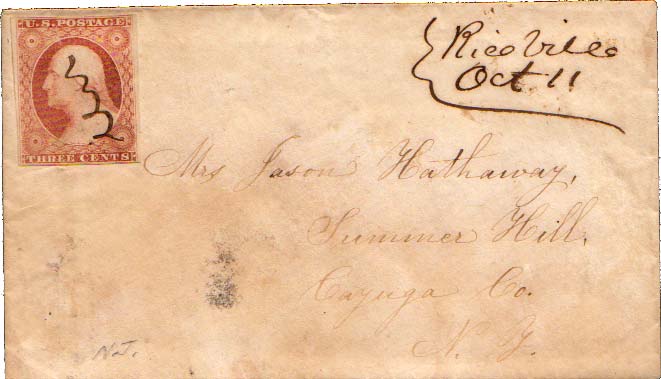 U.S. POSTAGE
THREE CENTS
RiceVille
Oct 11
Mrs Jason Hathaway,
Summer Hill,
Cayuga Co.
N. Y.
N.J.